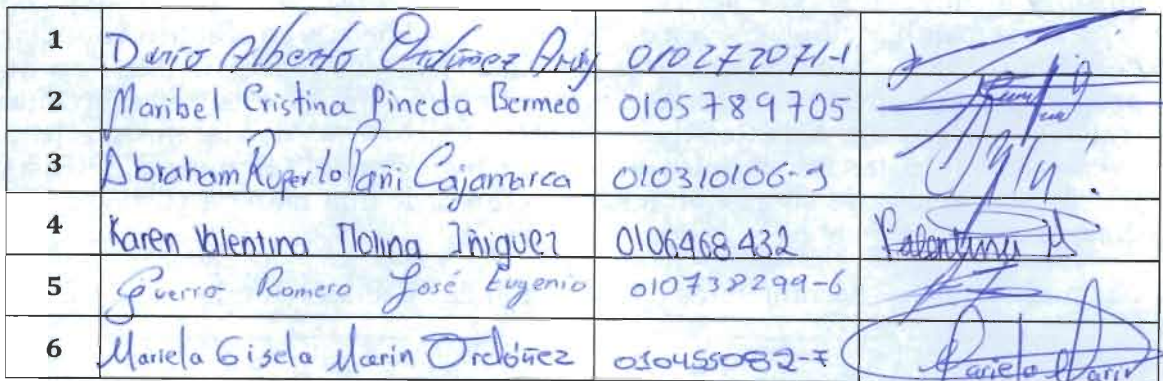 1 Darío Alberto Ordoñez Aray 010272071-1
2 Maribel Cristina Pineda Bermeo 0105789705
3 Abraham Ruperto Pañi Cajamarca 010310106-9
4 Karen Valentina Molina Iñiguez 0106468432 Valentina M
5 Guerro Romero José Eugenio 010738299-6
6 Mariela Gisela Marin Ordóñez 010455082-7 Mariela Marin